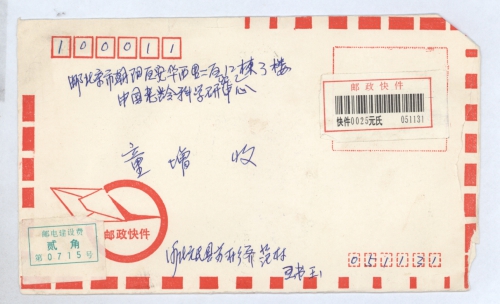 100011
邮北京市朝阳区光华西里二区12栋3楼
中国老龄科学研中心
邮政快件
快件0025元氏 051131
童增 收
邮政快件
邮电建设费
贰角
第0715号
河北元氏县苏村乡范村
051131